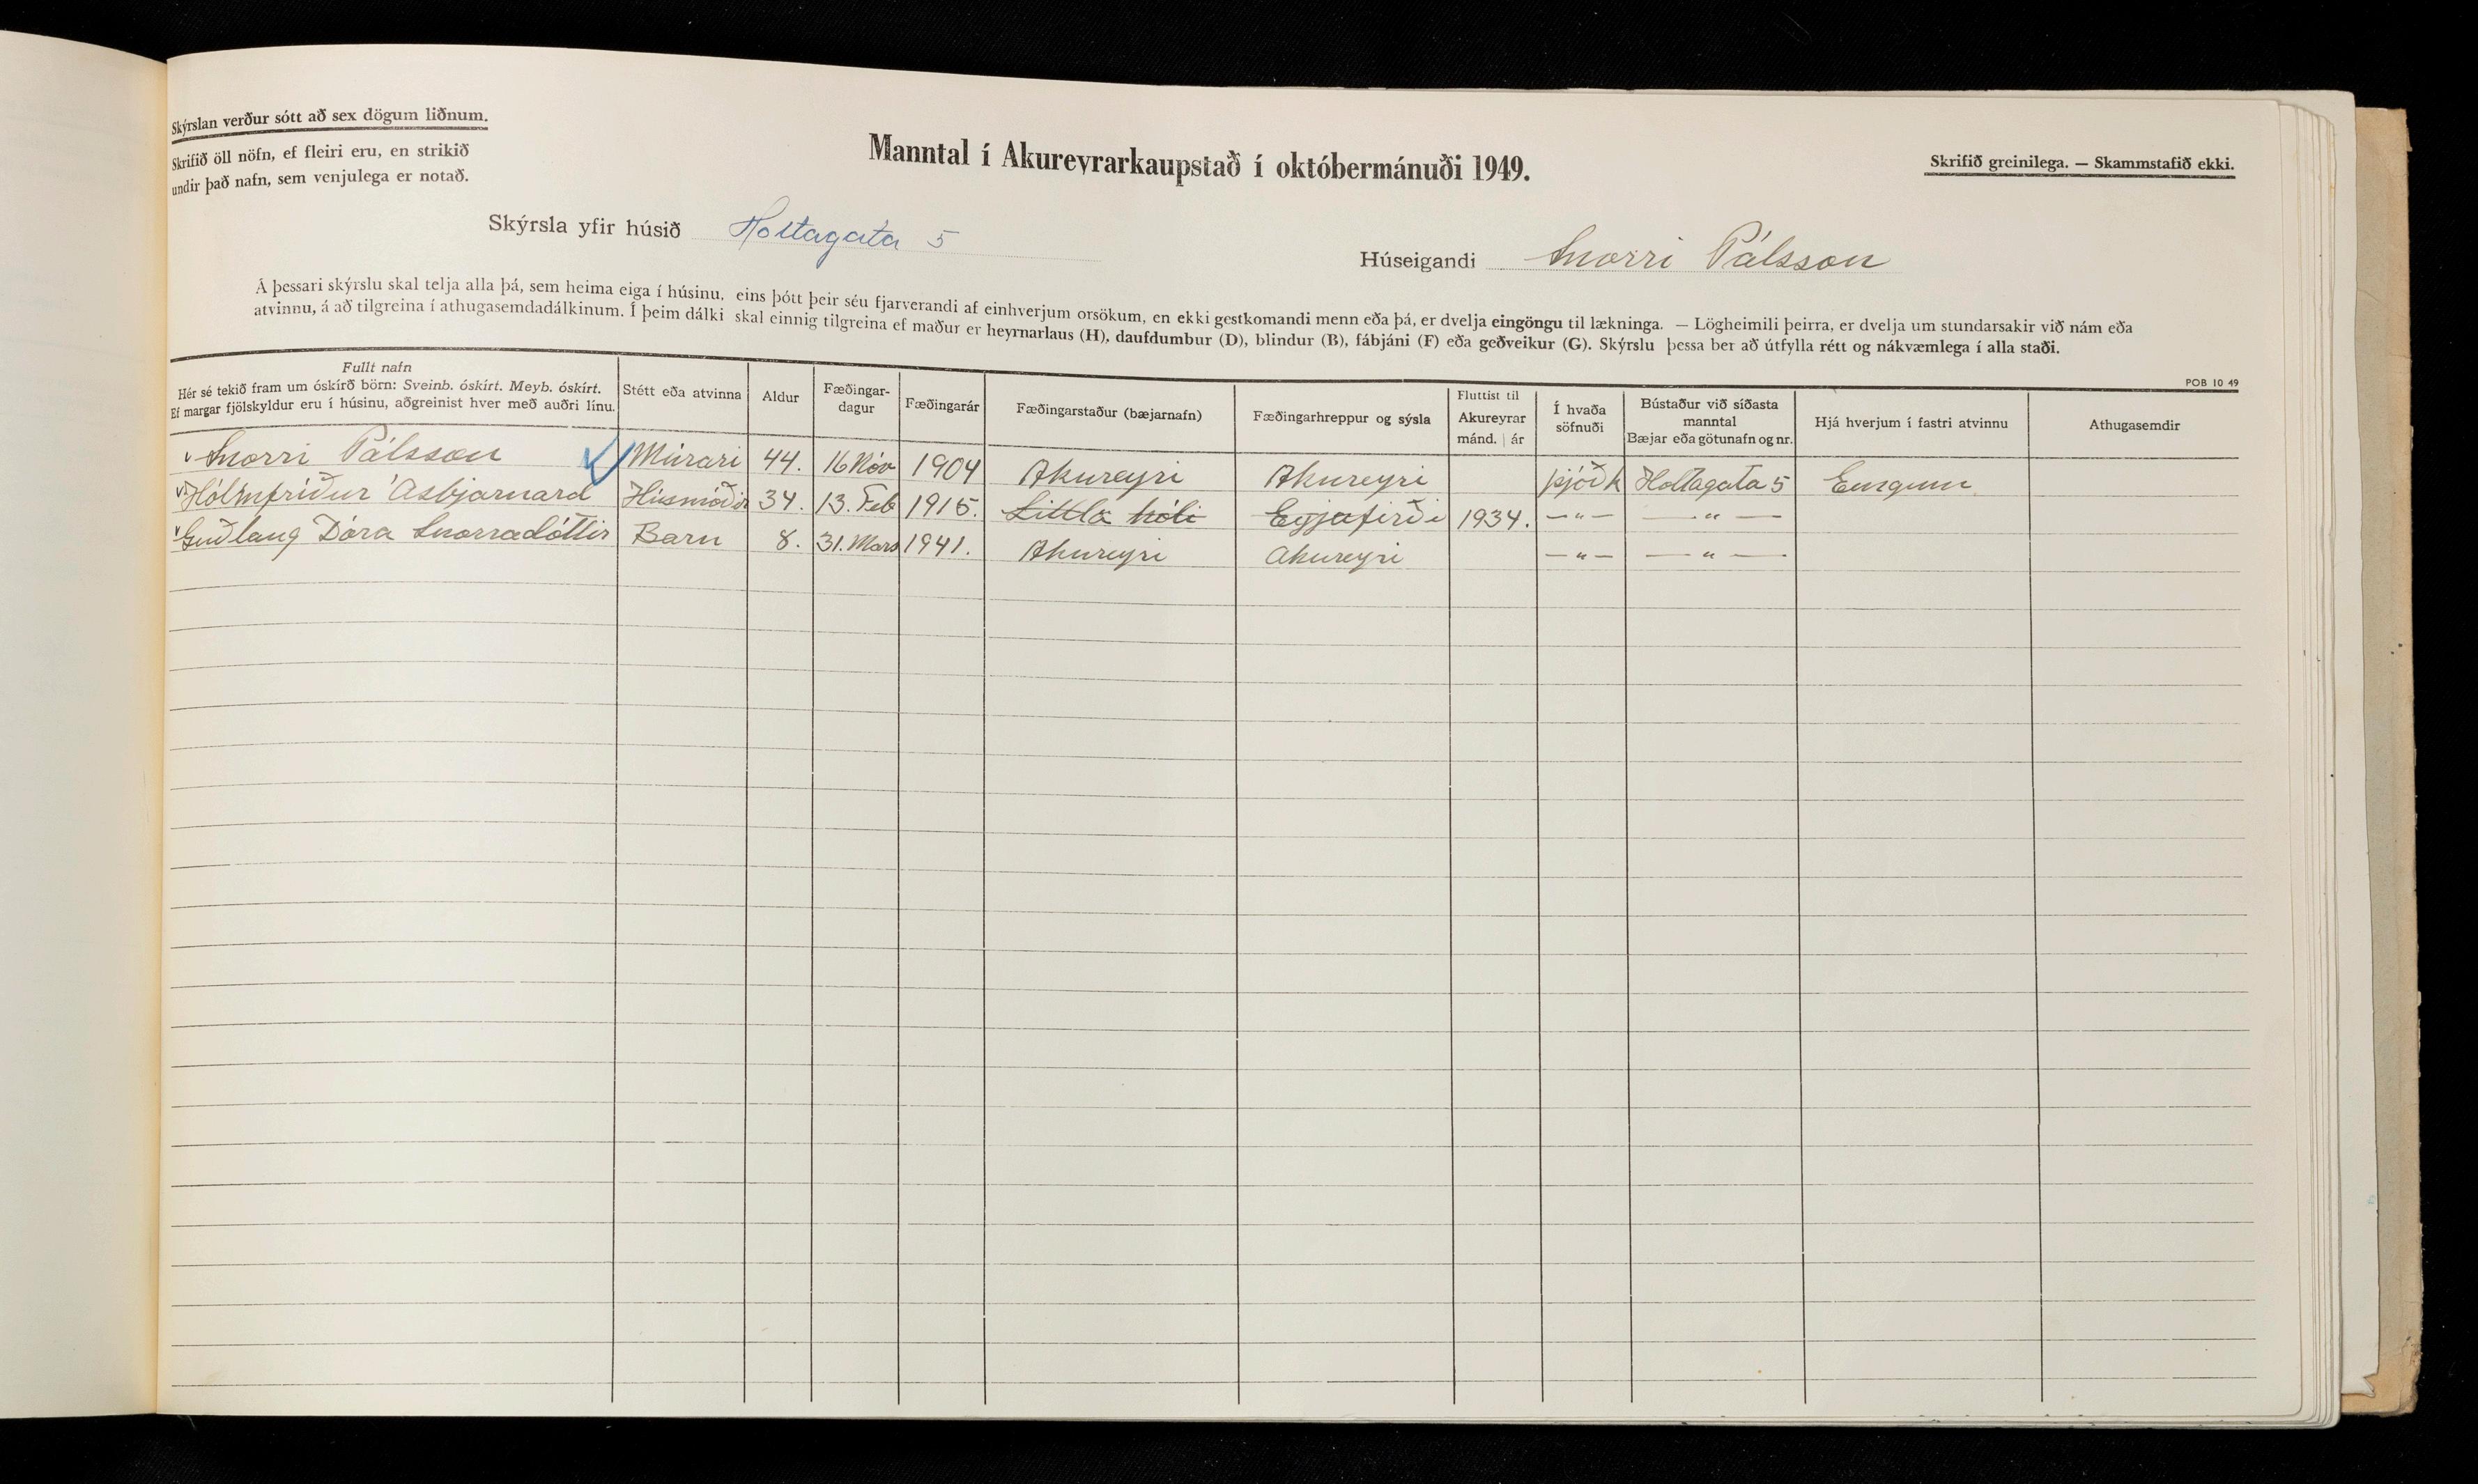 Skýrslan verður sótt að sex dögum liðnum.
Skrifið öll nöfn, ef fleiri eru, en strikið
undir það nafn, sem venjulega er notað.
Manntal í Akureyrarkaupstað í októbermánuði 1949.
Skrifið greinilega. — Skammstafið ekki.
Skýrsla yfir húsið Holtagata 5
Húseigandi Snorri Pálsson
Á þessari skýrslu skal telja alla þá, sem heima eiga í húsinu, eins þótt þeir séu fjarverandi af einhverjum orsökum, en ekki gestkomandi menn eða þá, er dvelja eingöngu til lækninga. — Lögheimili þeirra, er dvelja um stundarsakir við nám eða
atvinnu, á að tilgreina í athugasemdadálkinum. Í þeim dálki skal einnig tilgreina ef maður er heyrnarlaus (H), daufdumbur (D), blindur (B), fábjáni (F) eða geðveikur (G). Skýrslu þessa ber að útfylla rétt og nákvæmlega í alla staði.
POB 10 49
Fullt nafn
Hér sé tekið fram um óskírð börn: Sveinb. óskírt. Meyb. óskírt.
Ef margar fjölskyldur eru í húsinu, aðgreinist hver með auðri línu.
Stétt eða atvinna
Aldur
Fæðingar-
dagur
Fæðingarár
Fæðingarstaður (bæjarnafn)
Fæðingarhreppur og sýsla
Fluttist til
Akureyrar
mánd. | ár
Í hvaða
söfnuði
Bústaður við síðasta
manntal
Bæjar eða götunafn og nr.
Hjá hverjum í fastri atvinnu
Athugasemdir
Snorri Pálsson Múrari 44. 16 Nóv 1904 Akureyri Akureyri þjóðk Holtagata 5 Eingum
Hólmfríður Ásbjarnard Húsmóðir 34. 13. Feb 1915. Littla hóli Eyjafirði 1934. —"— —"—
Guðlaug Dóra Snorradóttir Barn 8. 31. Mars 1941. Akureyri Akureyri —"— —"—